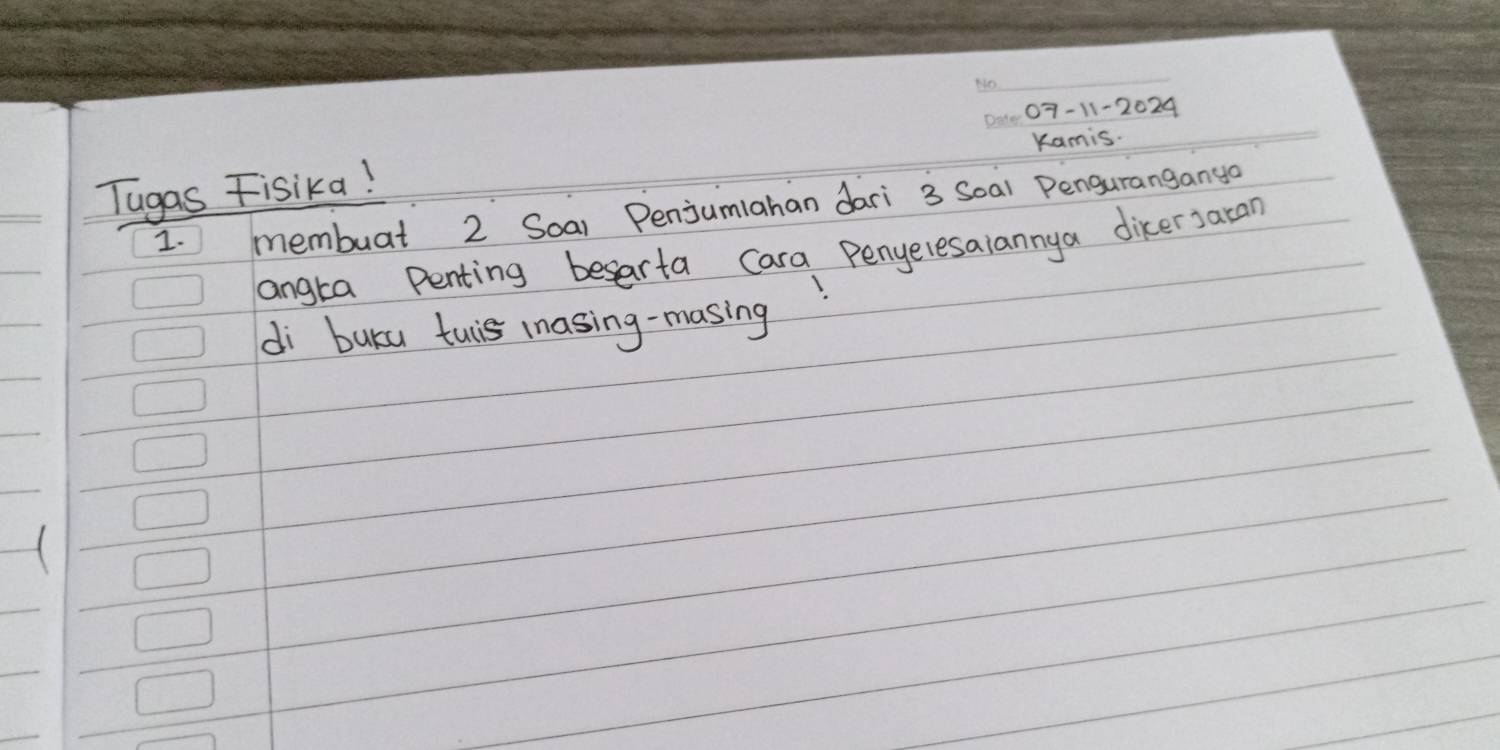 No.
Date: 07-11-2024
Kamis.
Tugas Fisika!
1. membuat 2 Soal Penjumlahan dari 3 Soal Penguranganya
angka Penting besarta Cara Penyelesaiannya dikerjakan
di buku tulis masing-masing!